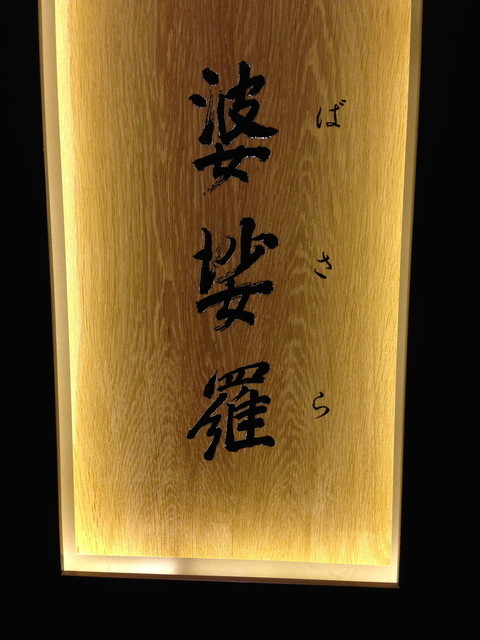 婆娑羅
ばさら